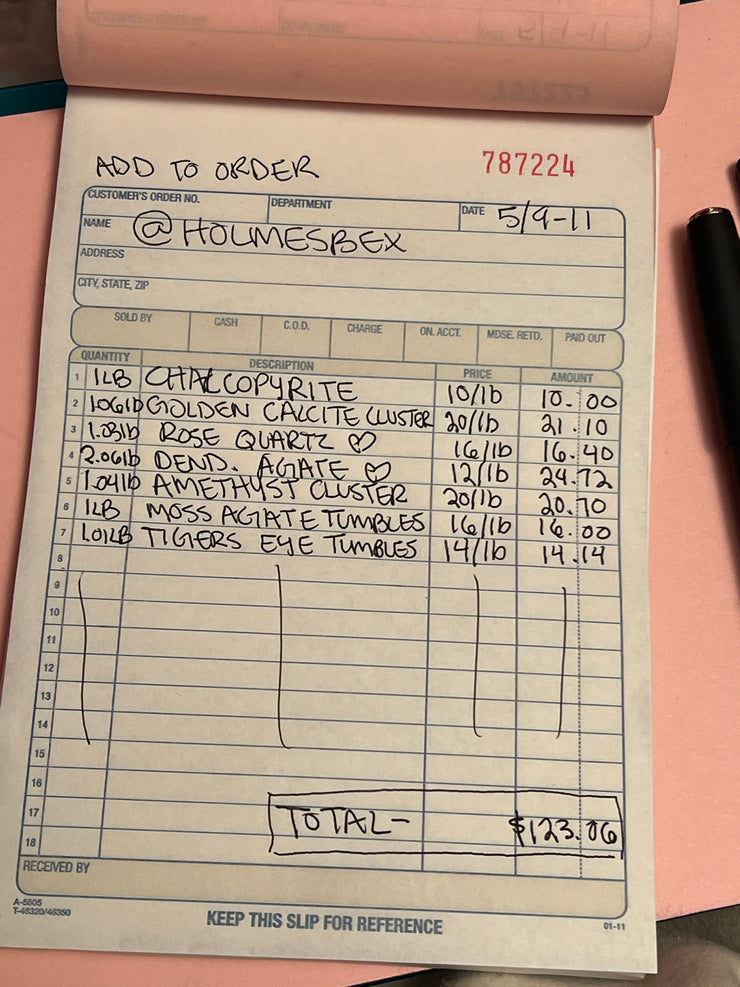 ADD TO ORDER
787224
CUSTOMER'S ORDER NO. DEPARTMENT DATE 5/9-11
NAME @HOLMESBEX
ADDRESS
CITY, STATE, ZIP
SOLD BY CASH C.O.D. CHARGE ON. ACCT. MDSE. RETD. PAID OUT
QUANTITY DESCRIPTION PRICE AMOUNT
1 1LB CHALCOPYRITE 10/lb 10.00
2 1.06lb GOLDEN CALCITE CLUSTER 20/lb 21.10
3 1.03lb ROSE QUARTZ ♡ 16/lb 16.40
4 2.06lb DEND. AGATE ♡ 12/lb 24.72
5 1.04lb AMETHYST CLUSTER 20/lb 20.70
6 1LB MOSS AGATE TUMBLES 16/lb 16.00
7 1.01LB TIGERS EYE TUMBLES 14/lb 14.14
8
9
10
11
12
13
14
15
16
17 TOTAL- $123.06
18
RECEIVED BY
A-5805
T-46320/46350
KEEP THIS SLIP FOR REFERENCE
01-11